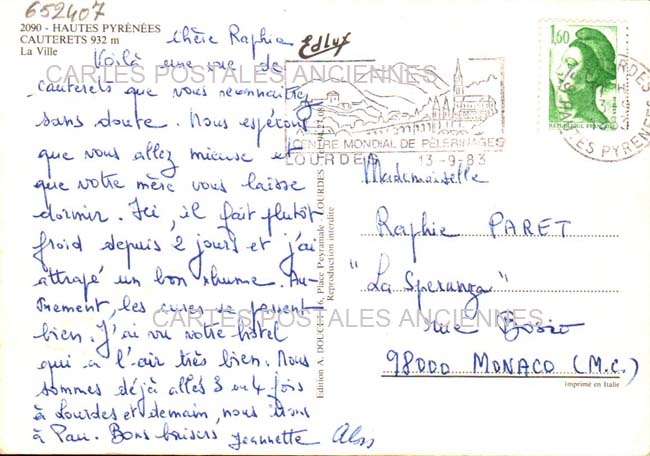 652407
2090 - HAUTES PYRÉNÉES
CAUTERETS 932 m
La Ville
Edlux
chère Raphia
Voilà une vue de
Cauterets que vous reconnaitrez
sans doute. Nous espérons
que vous allez mieuse et
que votre mère vous laisse
dormir. Ici, il fait plutôt
froid depuis 2 jours et j'ai
attrapé un bon rhume. Au-
trement, les cures se passent
bien. J'ai vu votre hôtel
qui a l'air très bien. Nous
sommes déjà allés 3 ou 4 fois
à Lourdes et demain, nous irons
à Pau. Bons baisers Jeannette
CENTRE MONDIAL DE PÈLERINAGES
LOURDES 13-9-83
1,60
REPUBLIQUE FRANÇAISE
LOURDES
HTES PYRENEES
Edition A. DOUCET, 16, Place Peyramale - LOURDES
Reproduction interdite
Mademoiselle
Raphie PARET
"La Speranza"
rue Bosio
98000 MONACO (M.C.)
imprimé en Italie
CARTES POSTALES ANCIENNES
CARTES POSTALES ANCIENNES